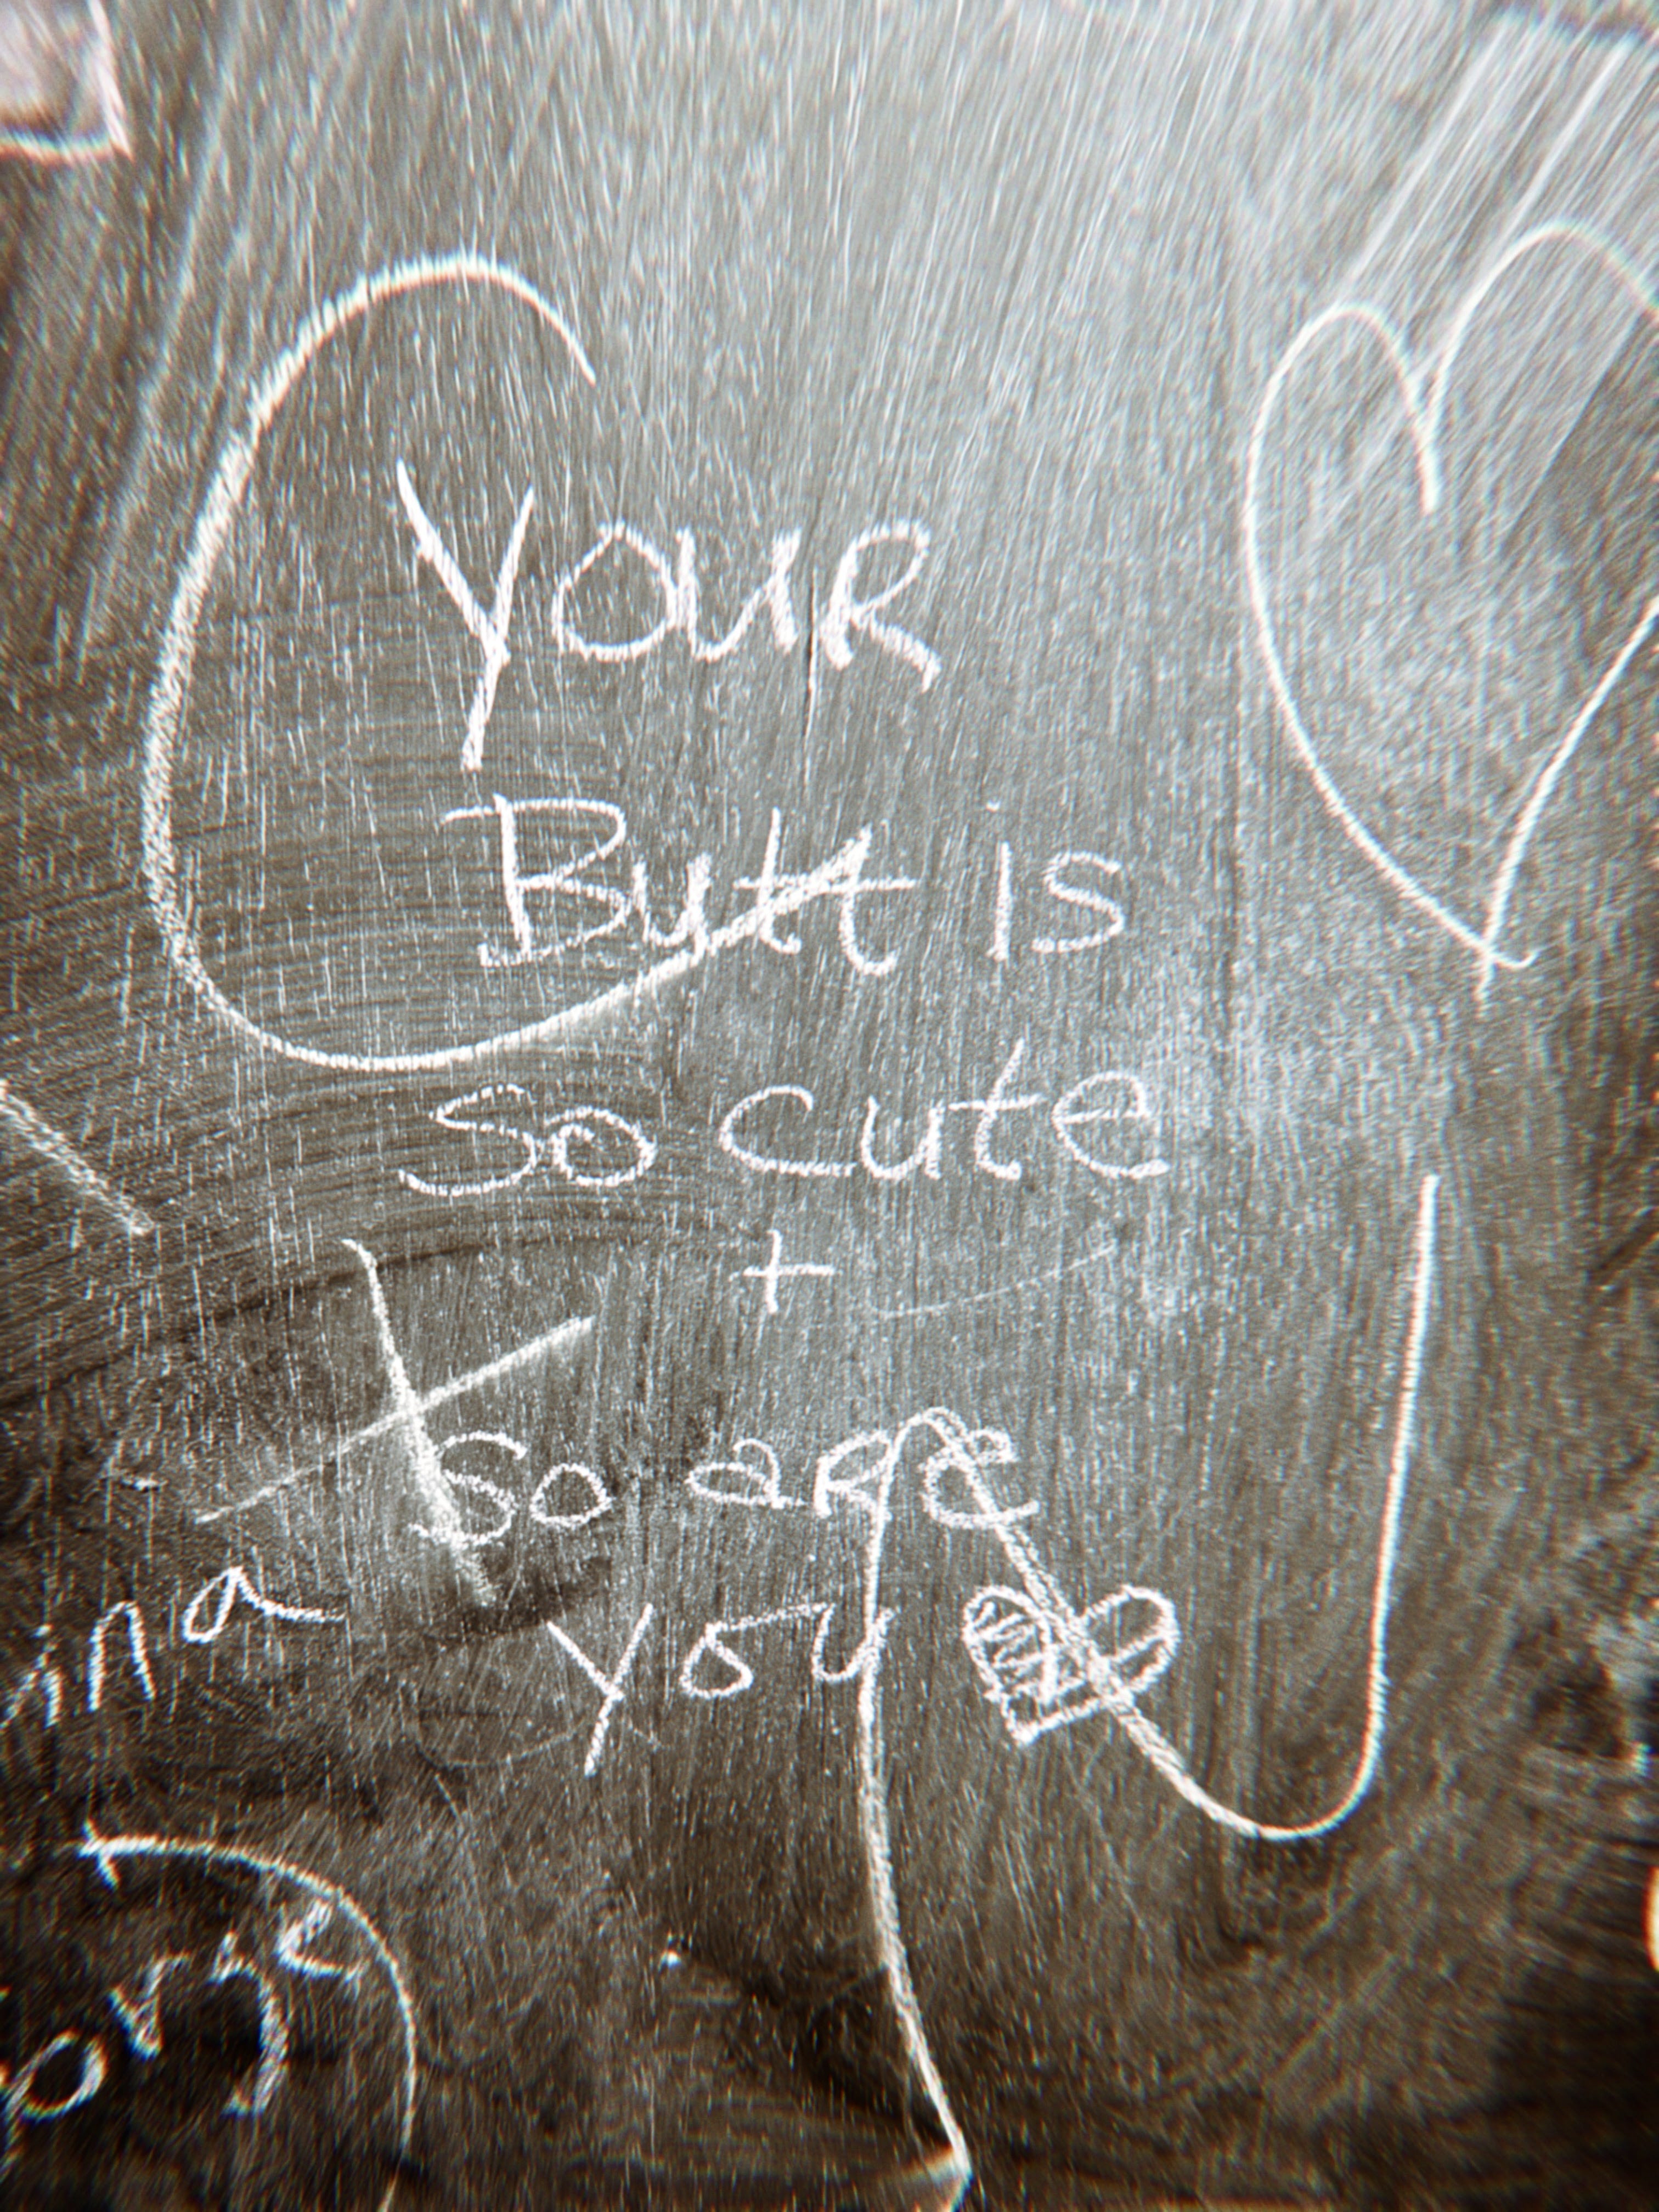 YOUR
Butt is
so cute
+
so aRe
you
ina